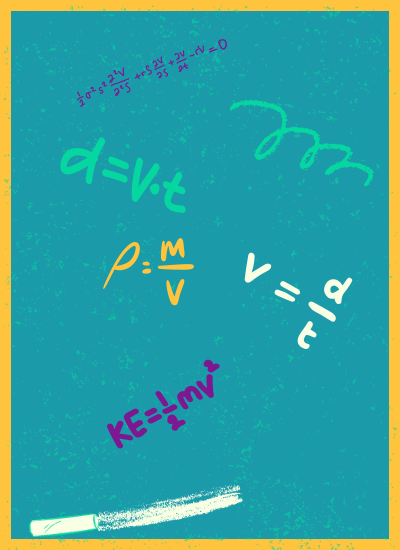 ½σ²s² ∂²V/∂²S + rS ∂V/∂S + ∂V/∂t - rV = 0
d = V·t
ρ = m/V
V = d/t
KE = ½mv²